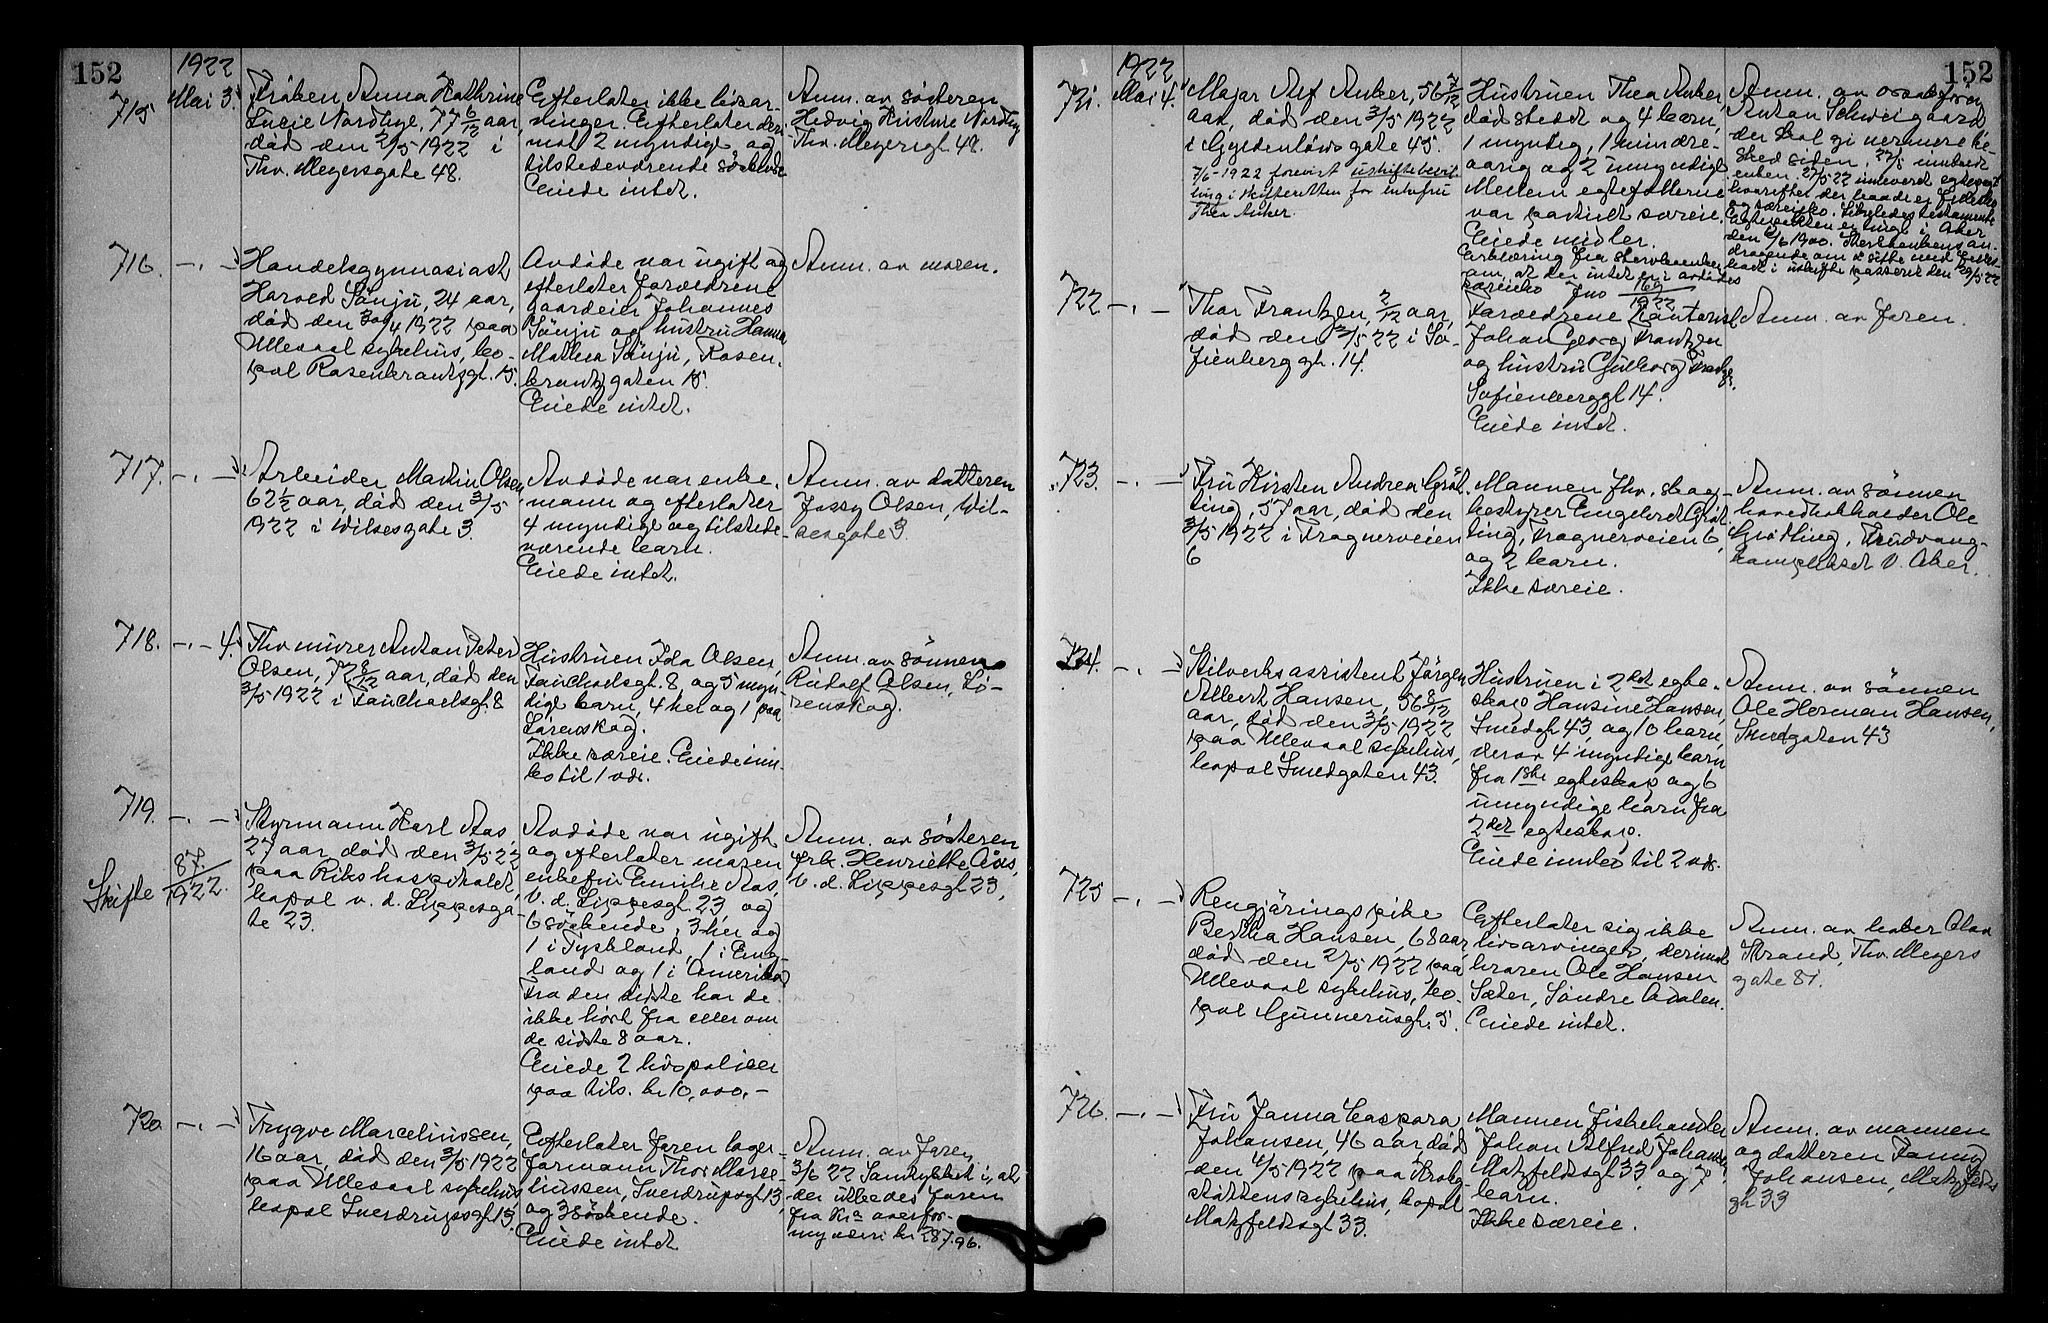 152
1922
715
Mai 3.
Frøken Anna Kathrine
Lucie Nordbye, 77 6/12 aar,
død den 2/5 1922 i
Thv. Meyersgate 48.
Efterlater ikke livsar-
vinger. Efterlater der-
mot 2 myndige og
tilstedeværende søskende
Eiede intet.
Anm. av søsteren
Hedvig Nordbye
Thv. Meyersgt. 48.
716. —.—
Handelsgymnasiast
Harald Sønju, 24 aar,
død den 30/4 1922 paa
Ullevaal sykehus, bo-
pæl Rosenkrantzgt. 15.
Avdøde var ugift og
efterlater forældrene
gaardeier Johannes
Sønju og hustru Hanna
Mathea Sønju, Rosen-
krantzgaten 15.
Eiede intet.
Anm. av moren.
717. —.—
Arbeider Martin Olsen,
62 1/2 aar, død den 3/5
1922 i Wilsesgate 3.
Avdøde var enke-
mann og efterlater
4 myndige og tilstede-
værende barn.
Eiede intet.
Anm. av datteren
Jossy Olsen, Wil-
sesgate 3.
718. —.— 4.
Fhv. murer Anton Peter
Olsen, 72 8/12 aar, død den
3/5 1922 i Fauchaldsgt. 8
Hustruen Ida Olsen,
Fauchaldsgt. 8, og 5 myn-
dige barn, 4 her og 1 paa
Lørenskog.
Ikke særeie. Eiede inn-
bo til 1 vdr.
Anm. av sønnen
Rudolf Olsen, Lø-
renskog.
719. —.—
Skifte 87/1922.
Styrmann Karl Aas,
27 aar, død den 3/5 22
paa Rikshospitalet,
bopæl v. d. Lippesga-
te 23.
Avdøde var ugift
og efterlater moren
enkefru Emilie Aas,
v. d. Lippesgt. 23, og
6 søskende, 3 her og
1 i Tyskland, 1 i Eng-
land og 1 i Amerika
Fra den siste har de
ikke hørt fra eller om
de siste 8 aar.
Eiede 2 livspoliser
paa tils. kr 10,000.-
Anm. av søsteren
frk. Henriette Aas,
v. d. Lippesgt 23,
720. —.—
Trygve Marceliussen,
16 aar, død den 3/5 1922
paa Ullevaal sykehus
bopæl Sverdrupsgt 13.
Efterlater faren lager-
formann Thor Marce-
liussen, Sverdrupsgt 13,
og 3 søskende.
Eiede intet
Anm. av faren
3/6 22 Samtykket i, at
der utbedes faren
fra Kra overfor-
mynderi kr 287.96.
152
1922
721.
Mai 4.
Major Alf Anker, 56 7/12
aar, død den 3/5 1922
i Gyldenløvs gate 45.
7/6-1922 forevist uskiftebevil-
ling i skifteretten for enkefru
Thea Anker.
Hustruen Thea Anker
dødstedet og 4 barn,
1 myndig, 1 mindre-
aarig og 2 umyndige
Mellem egtefællerne
var partielt særeie.
Eiede midler.
Erklæring fra
om at der intet er i avdødes
særeie Jno 169/1922
Anm. av
Anton Schweigaard
der skal gi nærmere be-
sked siden. 22/5
enken. 27/5 22 innleveret egtepagt
hvorefter der baade er fælleseie
og særeie. Likeledes testamente
Egtepakten er tingl. i Aker
den 6/6 1900.
dragende om
i uskifte passeret den 29/5 22
722. —.—
Thor Frantzen, 2/12 aar,
død den 2/5 22 i So-
fienberggt. 14.
Forældrene Kontorist
Johan Georg Frantzen
og hustru Gulborg Frantzen,
Sofienberggt 14.
Eiede intet.
Anm. av faren.
723. —.—
Fru Kirsten Andrea Grøt-
ting, 57 aar, død den
3/5 1922 i Frognerveien
6
Mannen fhv. skog-
bestyrer Engebret Grøt-
ting, Frognerveien 6,
og 2 barn.
Ikke særeie.
Anm. av sønnen
hovedbokholder Ole
Grøtting, Trudvang-
komplekset V. Aker.
724. —.—
Stilverksassistent Jørgen
Albert Hansen, 56 8/12
aar, død den 3/5 1922
paa Ullevaal sykehus,
bopæl Smedgaten 43.
Hustruen i 2det egte-
skap Hansine Hansen,
Smedgt 43, og 10 barn,
derav 4 myndige barn
fra 1ste egteskap og 6
umyndige barn fra
2det egteskap.
Eiede innbo til 2 vdr.
Anm. av sønnen
Ole Herman Hansen,
Smedgaten 43
725 —.—
Rengjøringspike
Bertha Hansen, 68 aar,
død den 2/5 1922 paa
Ullevaal sykehus, bo-
pæl Gunnerusgt. 5.
Efterlater sig ikke
livsarvinger, derimot
broren Ole Hansen
Sæter, Søndre Aadalen.
Eiede intet.
Anm. av Olav
Strand, Thv. Meyers
gate 81.
726. —.—
Fru Janna Caspara
Johansen, 46 aar, død
den 4/5 1922 paa Krohg-
støttens sykehus, bopæl
Motzfeldtsgt 33.
Mannen fiskehandler
Johan Alfred Johansen
Motzfeldtsgt 33, og 7
barn.
Ikke særeie.
Anm. av mannen
og datteren Fanny
Johansen, Motzfeldts
gt 33